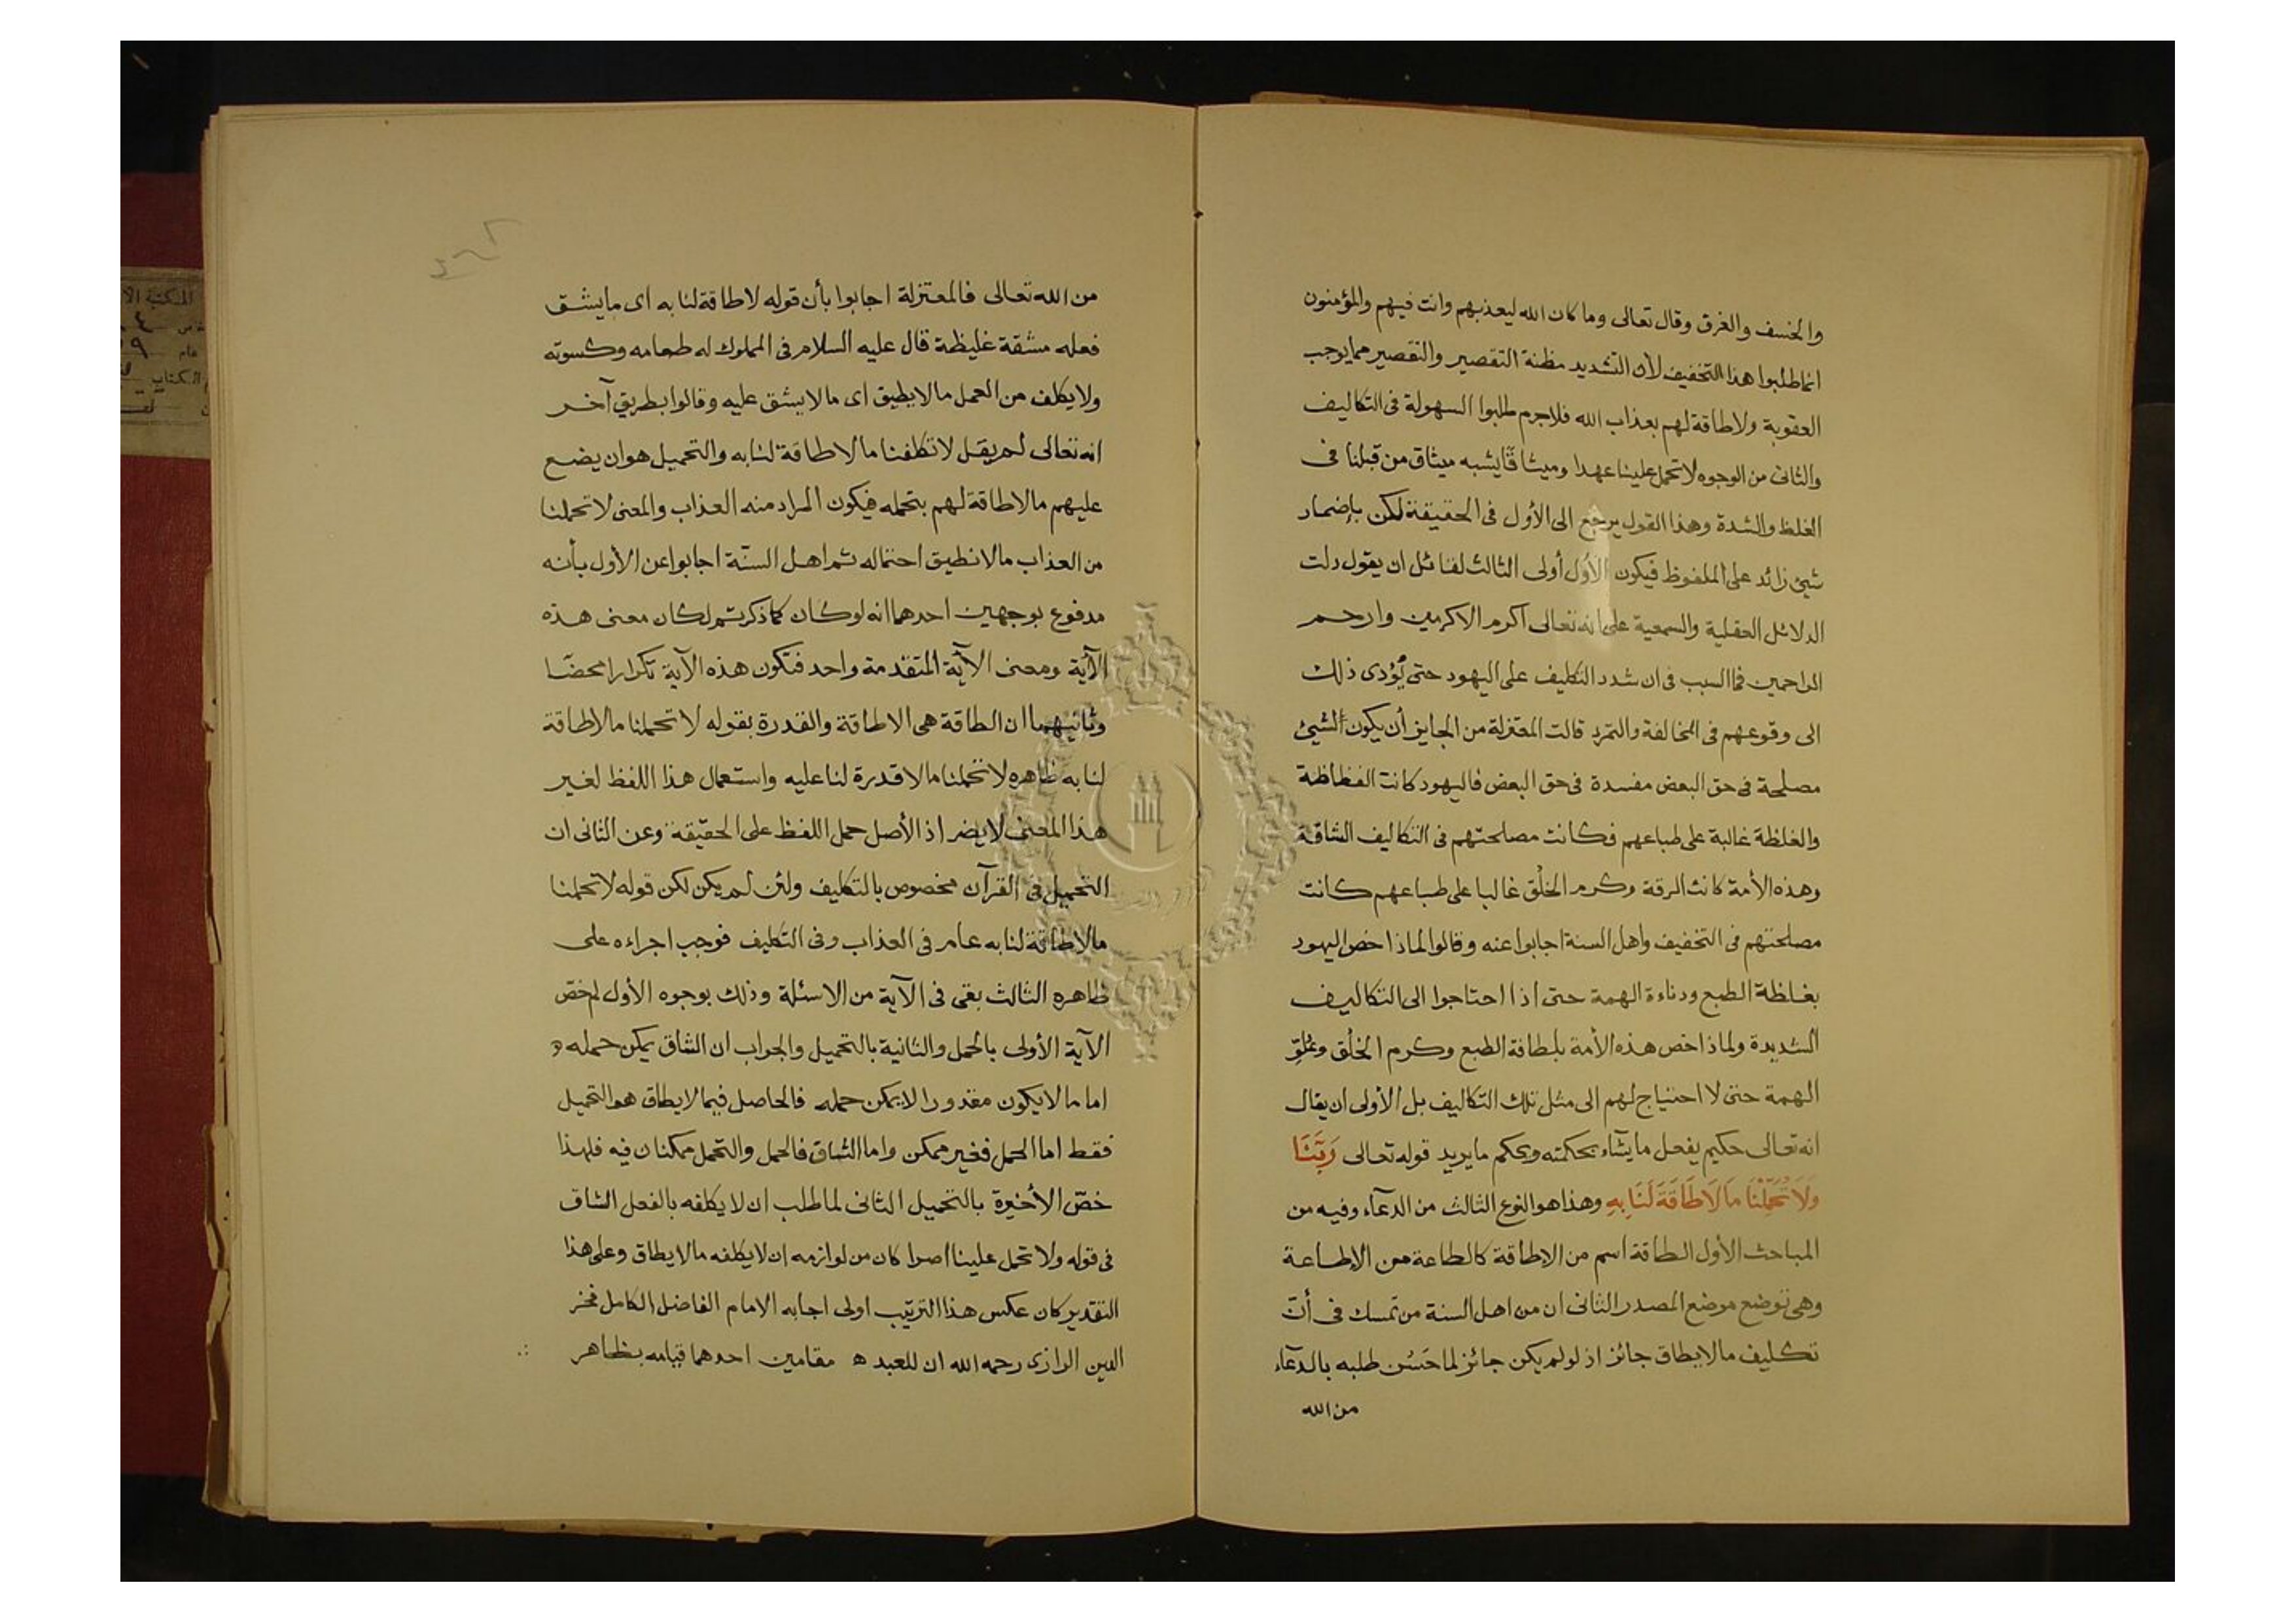 والخسف والغرق وقال تعالى وما كان الله ليعذبهم وانت فيهم والمؤمنون
انما طلبوا هذا التخفيف لأن التشديد مظنة التقصير والتقصير مما يوجب
العقوبة ولاطاقة لهم بعذاب الله فلاجرم طلبوا السهولة فى التكاليف
والثانى من الوجوه لا تحمل علينا عهدا وميثاقًا يشبه ميثاق من قبلنا فى
الغلظ والشدة وهذا القول يرجع الى الأول فى الحقيقة لكن بإضمار
شيئ زائد على الملفوظ فيكون الأول أولى الثالث لقائل ان يقول دلت
الدلائل العقلية والسمعية على انه تعالى اكرم الاكرمين وارحم
الراحمين فما السبب فى ان شدد التكليف على اليهود حتى يؤدى ذلك
الى وقوعهم فى المخالفة والتمرد قالت المعتزلة من الجايز أن يكون الشيئ
مصلحة فى حق البعض مفسدة فى حق البعض فاليهود كانت الفظاظة
والغلظة غالبة على طباعهم فكانت مصلحتهم فى التكاليف الشاقة
وهذه الأمة كانت الرقة وكرم الخلُق غالبا على طباعهم كانت
مصلحتهم فى التخفيف واهل السنة اجابوا عنه وقالوا لماذا خص اليهود
بغلظة الطبع ودناءة الهمة حتى اذا احتاجوا الى التكاليف
الشديدة ولماذا خص هذه الأمة بلطافة الطبع وكرم الخلُق وعلوّ
الهمة حتى لا احتياج لهم الى مثل تلك التكاليف بل الأولى ان يقال
انه تعالى حكيم يفعل ما يشاء بحكمته ويحكم ما يريد قوله تعالى رَبَّنَا
وَلَا تُحَمِّلْنَا مَا لَا طَاقَةَ لَنَا بِهِ وهذا هو النوع الثالث من الدعآء وفيه من
المباحث الأول الطاقة اسم من الإطاقة كالطاعة من الإطاعة
وهى توضع موضع المصدر الثانى ان من اهل السنة من تمسك فى أن
تكليف مالايطاق جائز اذ لو لم يكن جائز لما حَسُن طلبه بالدعآء
من الله
من الله تعالى فالمعتزلة اجابوا بأن قوله لاطاقة لنا به اى مايشق
فعله مشقة غليظة قال عليه السلام فى المملوك له طعامه وكسوته
ولايكلف من العمل مالايطيق اى مالايشق عليه وقالوا بطريق آخر
انه تعالى لم يقل لاتكلفنا مالاطاقة لنابه والتحميل هو ان يضع
عليهم مالاطاقة لهم بتحمله فيكون المراد منه العذاب والمعنى لاتحملنا
من العذاب مالانطيق احتماله ثم اهل السنّة اجابوا عن الأول بأنه
مدفوع بوجهين احدهما انه لو كان كما ذكرتم لكان معنى هذه
الآية ومعنى الآية المتقدمة واحد فتكون هذه الآية تكرارا محضًا
وثانيهما ان الطاقة هى الاطاقة والقدرة بقوله لاتحملنا مالاطاقة
لنا به ظاهره لاتحملنا مالاقدرة لنا عليه واستعمال هذا اللفظ لغير
هذا المعنى لايضر اذ الأصل حمل اللفظ على الحقيقة وعن الثانى ان
التحميل فى القرآن مخصوص بالتكليف ولئن لم يكن لكن قوله لاتحملنا
مالاطاقة لنا به عام فى العذاب وفى التكليف فوجب اجراءه على
ظاهره الثالث بقى فى الآية من الاسئلة وذلك بوجوه الأول لم خصّ
الآية الأولى بالحمل والثانية بالتحميل والجواب ان الشاق يمكن حمله و
اما مالايكون مقدورا لايمكن حمله فالحاصل فيما لايطاق هو التحميل
فقط اما الحمل فغير ممكن واما الشاق فالحمل والتحمل ممكنان فيه فلهذا
خصّ الأخيرة بالتحميل الثانى لما طلب ان لا يكلفه بالفعل الشاق
فى قوله ولاتحمل علينا اصرا كان من لوازمه ان لايكلفه مالايطاق وعلى هذا
التقدير كان عكس هذا الترتيب اولى اجابه الامام الفاضل الكامل فخر
الدين الرازى رحمه الله ان للعبد مقامين احدهما قيامه بظاهر